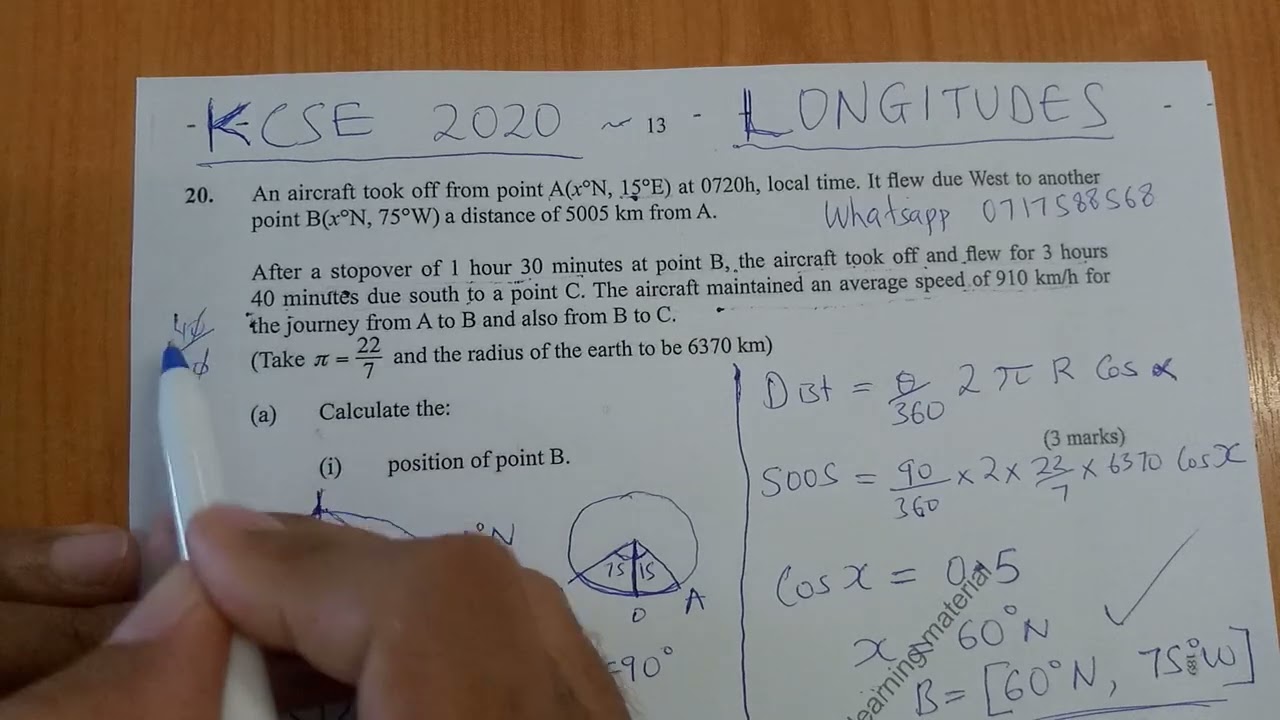 -KCSE 2020 ~ 13 - LONGITUDES - -
20. An aircraft took off from point A(x°N, 15°E) at 0720h, local time. It flew due West to another
point B(x°N, 75°W) a distance of 5005 km from A.
Whatsapp 0717588568
After a stopover of 1 hour 30 minutes at point B, the aircraft took off and flew for 3 hours
40 minutes due south to a point C. The aircraft maintained an average speed of 910 km/h for
the journey from A to B and also from B to C.
(Take π = 22/7 and the radius of the earth to be 6370 km)
(a) Calculate the:
(i) position of point B.
(3 marks)
°N
75 15
O A
=90°
Dist = θ/360 2 π R Cos α
5005 = 90/360 × 2 × 22/7 × 6370 Cos x
Cos x = 0.5
x = 60°N
B = [60°N, 75°W]
learning material